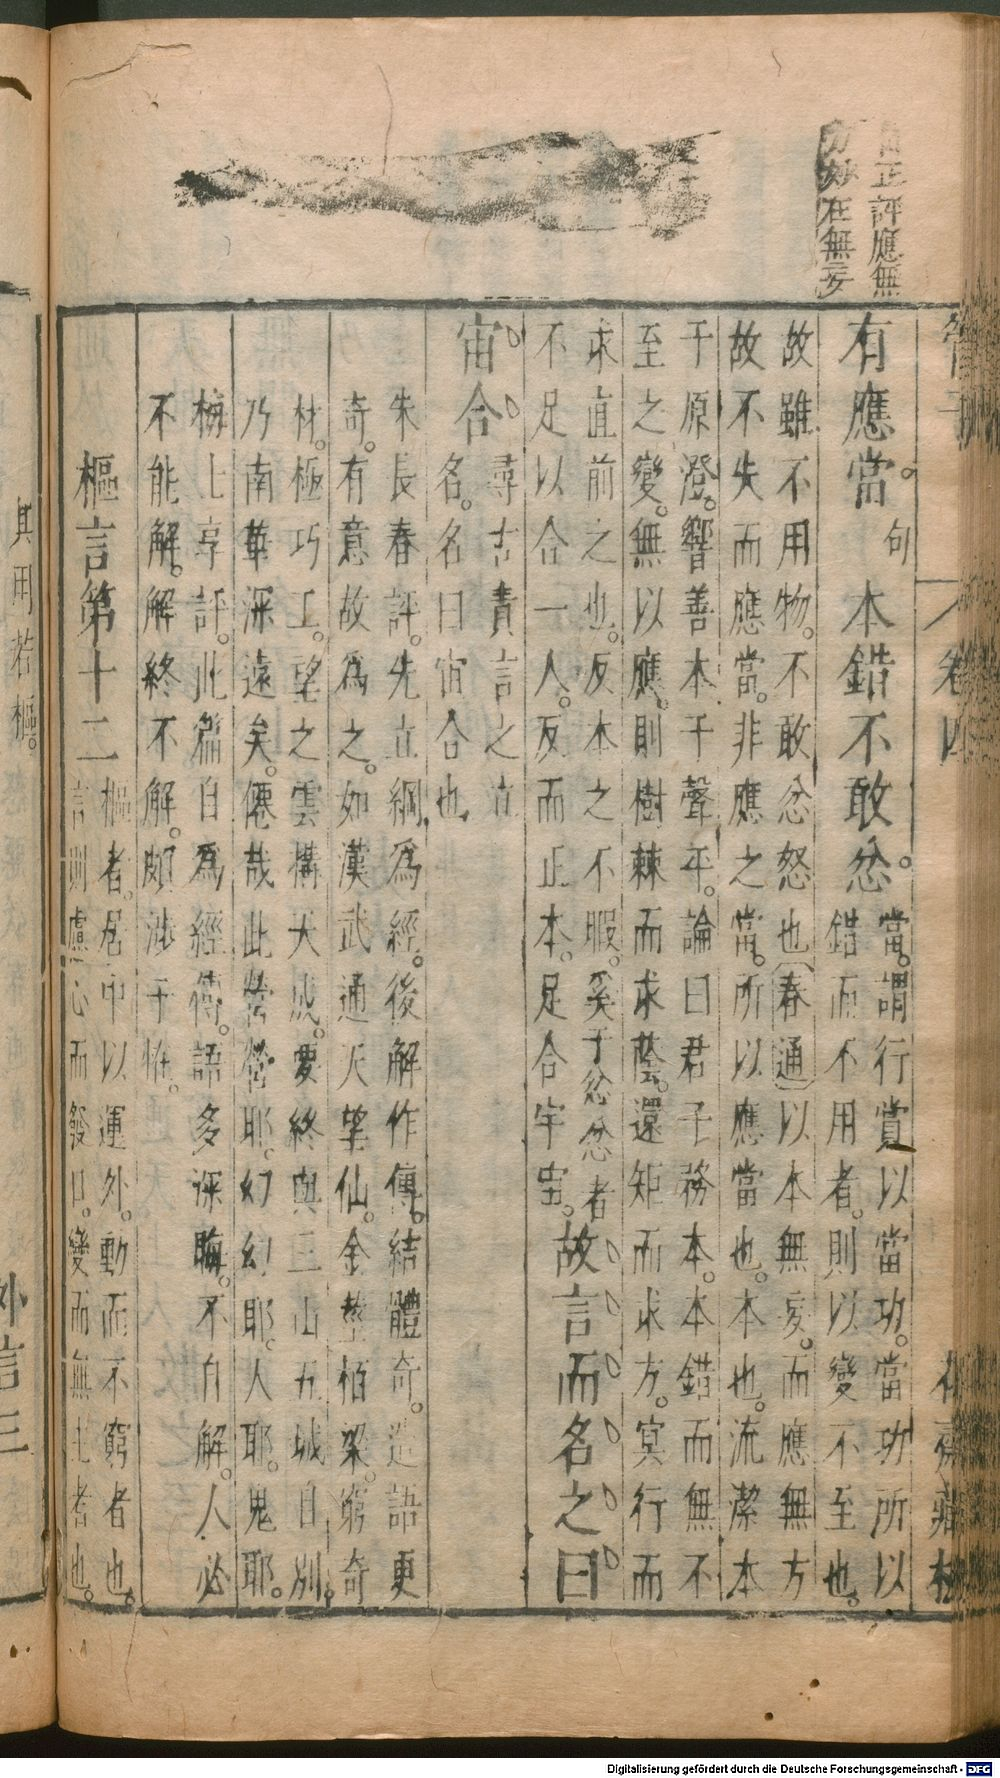 正評應無
方妙在無妄
管子
卷四
有應當。句 本錯不敢忿。
當。謂行賞以當功。當功所以
錯而不用者。則以變不至也。
故雖不用物。不敢忿怒也(春通)以本無妄。而應無方
故不失而應當。非應之當。所以應當也。本也。流潔本
于原澄。響善本于聲平。論曰君子務本。本錯而無不
至之變。無以應。則樹棘而求蔭。還矩而求方。冥行而
求直前之也。反本之不暇。奚于忿忿者
不足以合一人。反而正本。足合宇宙。故言而名之曰
宙合。
尋古責言之立
名。名曰宙合也
朱長春評。先立綱為經。後解作傳。結體奇。造語更
奇。有意故為之。如漢武通天望仙。金莖栢梁。窮奇
材。極巧工。望之雲構天成。要終與三山五城自別。
乃南華深遠矣。僊哉此營營耶。幻幻耶。人耶。鬼耶。
梅士享評。此篇自為經傳。語多深晦。不自解。人必
不能解。解終不解。頗涉于怪。
樞言第十二
樞者。居中以運外。動而不窮者也。
言則慮心而發口。變而無主者也。
其用若樞。
外言三
Digitalisierung gefördert durch die Deutsche Forschungsgemeinschaft - DFG